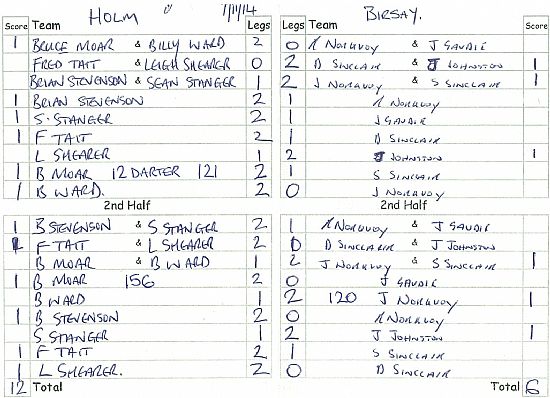 HOLM v 7/11/14 BIRSAY.
Score Team Legs Legs Team Score
1 BRUCE MOAR & BILLY WARD 2 0 R NORKUOY & J GAUDIE
FRED TAIT & LEIGH SHEARER 0 2 D SINCLAIR & J JOHNSTON 1
BRIAN STEVENSON & SEAN STANGER 1 2 J NORKUOY & S SINCLAIR 1
1 BRIAN STEVENSON 2 1 R NORKUOY
1 S. STANGER 2 1 J GAUDIE
1 F TAIT 2 1 D SINCLAIR
L SHEARER 1 2 J JOHNSTON 1
1 B MOAR 12 DARTER 121 2 1 S SINCLAIR
1 B WARD. 2 0 J NORKUOY
2nd Half 2nd Half
1 B STEVENSON & S STANGER 2 1 R NORKUOY & J GAUDIE
1 F TAIT & L SHEARER 2 0 D SINCLAIR & J JOHNSTON
B MOAR & B WARD 1 2 J NORKUOY & S SINCLAIR 1
1 B MOAR 156 2 0 J GAUDIE
B WARD 1 2 120 J NORKUOY 1
1 B STEVENSON 2 0 R NORKUOY
S STANGER 1 2 J JOHNSTON 1
1 F TAIT 2 1 S SINCLAIR
1 L SHEARER. 2 0 D SINCLAIR
12 Total Total 6